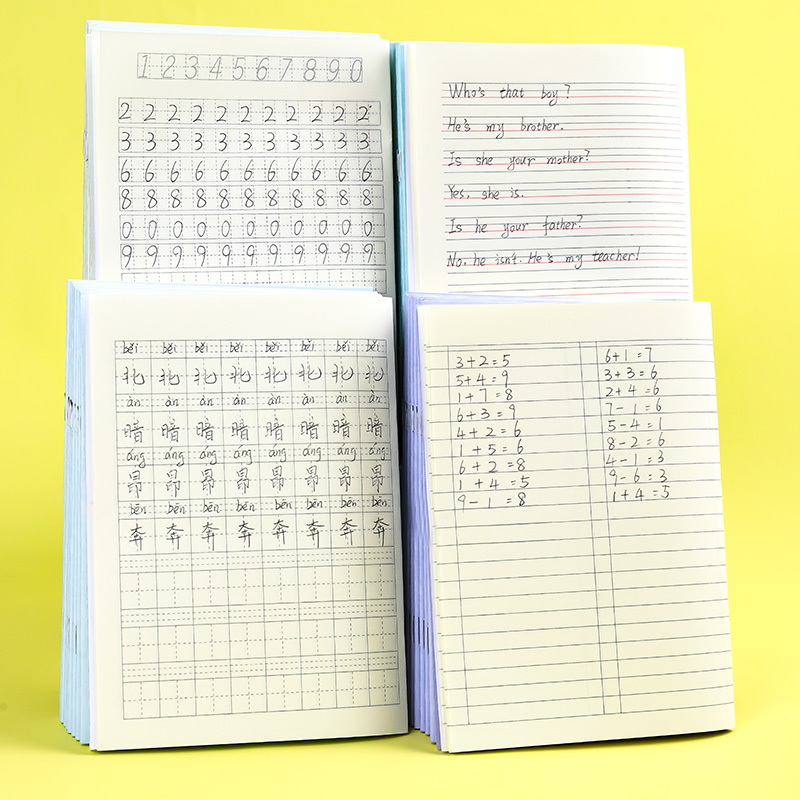 1 2 3 4 5 6 7 8 9 0
2 2 2 2 2 2 2 2 2 2 2
3 3 3 3 3 3 3 3 3 3 3
6 6 6 6 6 6 6 6 6 6 6
8 8 8 8 8 8 8 8 8 8 8
0 0 0 0 0 0 0 0 0 0 0
9 9 9 9 9 9 9 9 9 9 9
Who's that boy?
He's my brother.
Is she your mother?
Yes, she is.
Is he your father?
No, he isn't. He's my teacher!
běi běi běi běi běi běi běi běi
北 北 北 北 北 北 北 北
àn àn àn àn àn àn àn àn
暗 暗 暗 暗 暗 暗 暗 暗
áng áng áng áng áng áng áng áng
昂 昂 昂 昂 昂 昂 昂 昂
bēn bēn bēn bēn bēn bēn bēn bēn
奔 奔 奔 奔 奔 奔 奔 奔
3+2=5
5+4=9
1+7=8
6+3=9
4+2=6
1+5=6
6+2=8
1+4=5
9-1=8
6+1=7
3+3=6
2+4=6
7-1=6
5-4=1
8-2=6
4-1=3
9-6=3
1+4=5